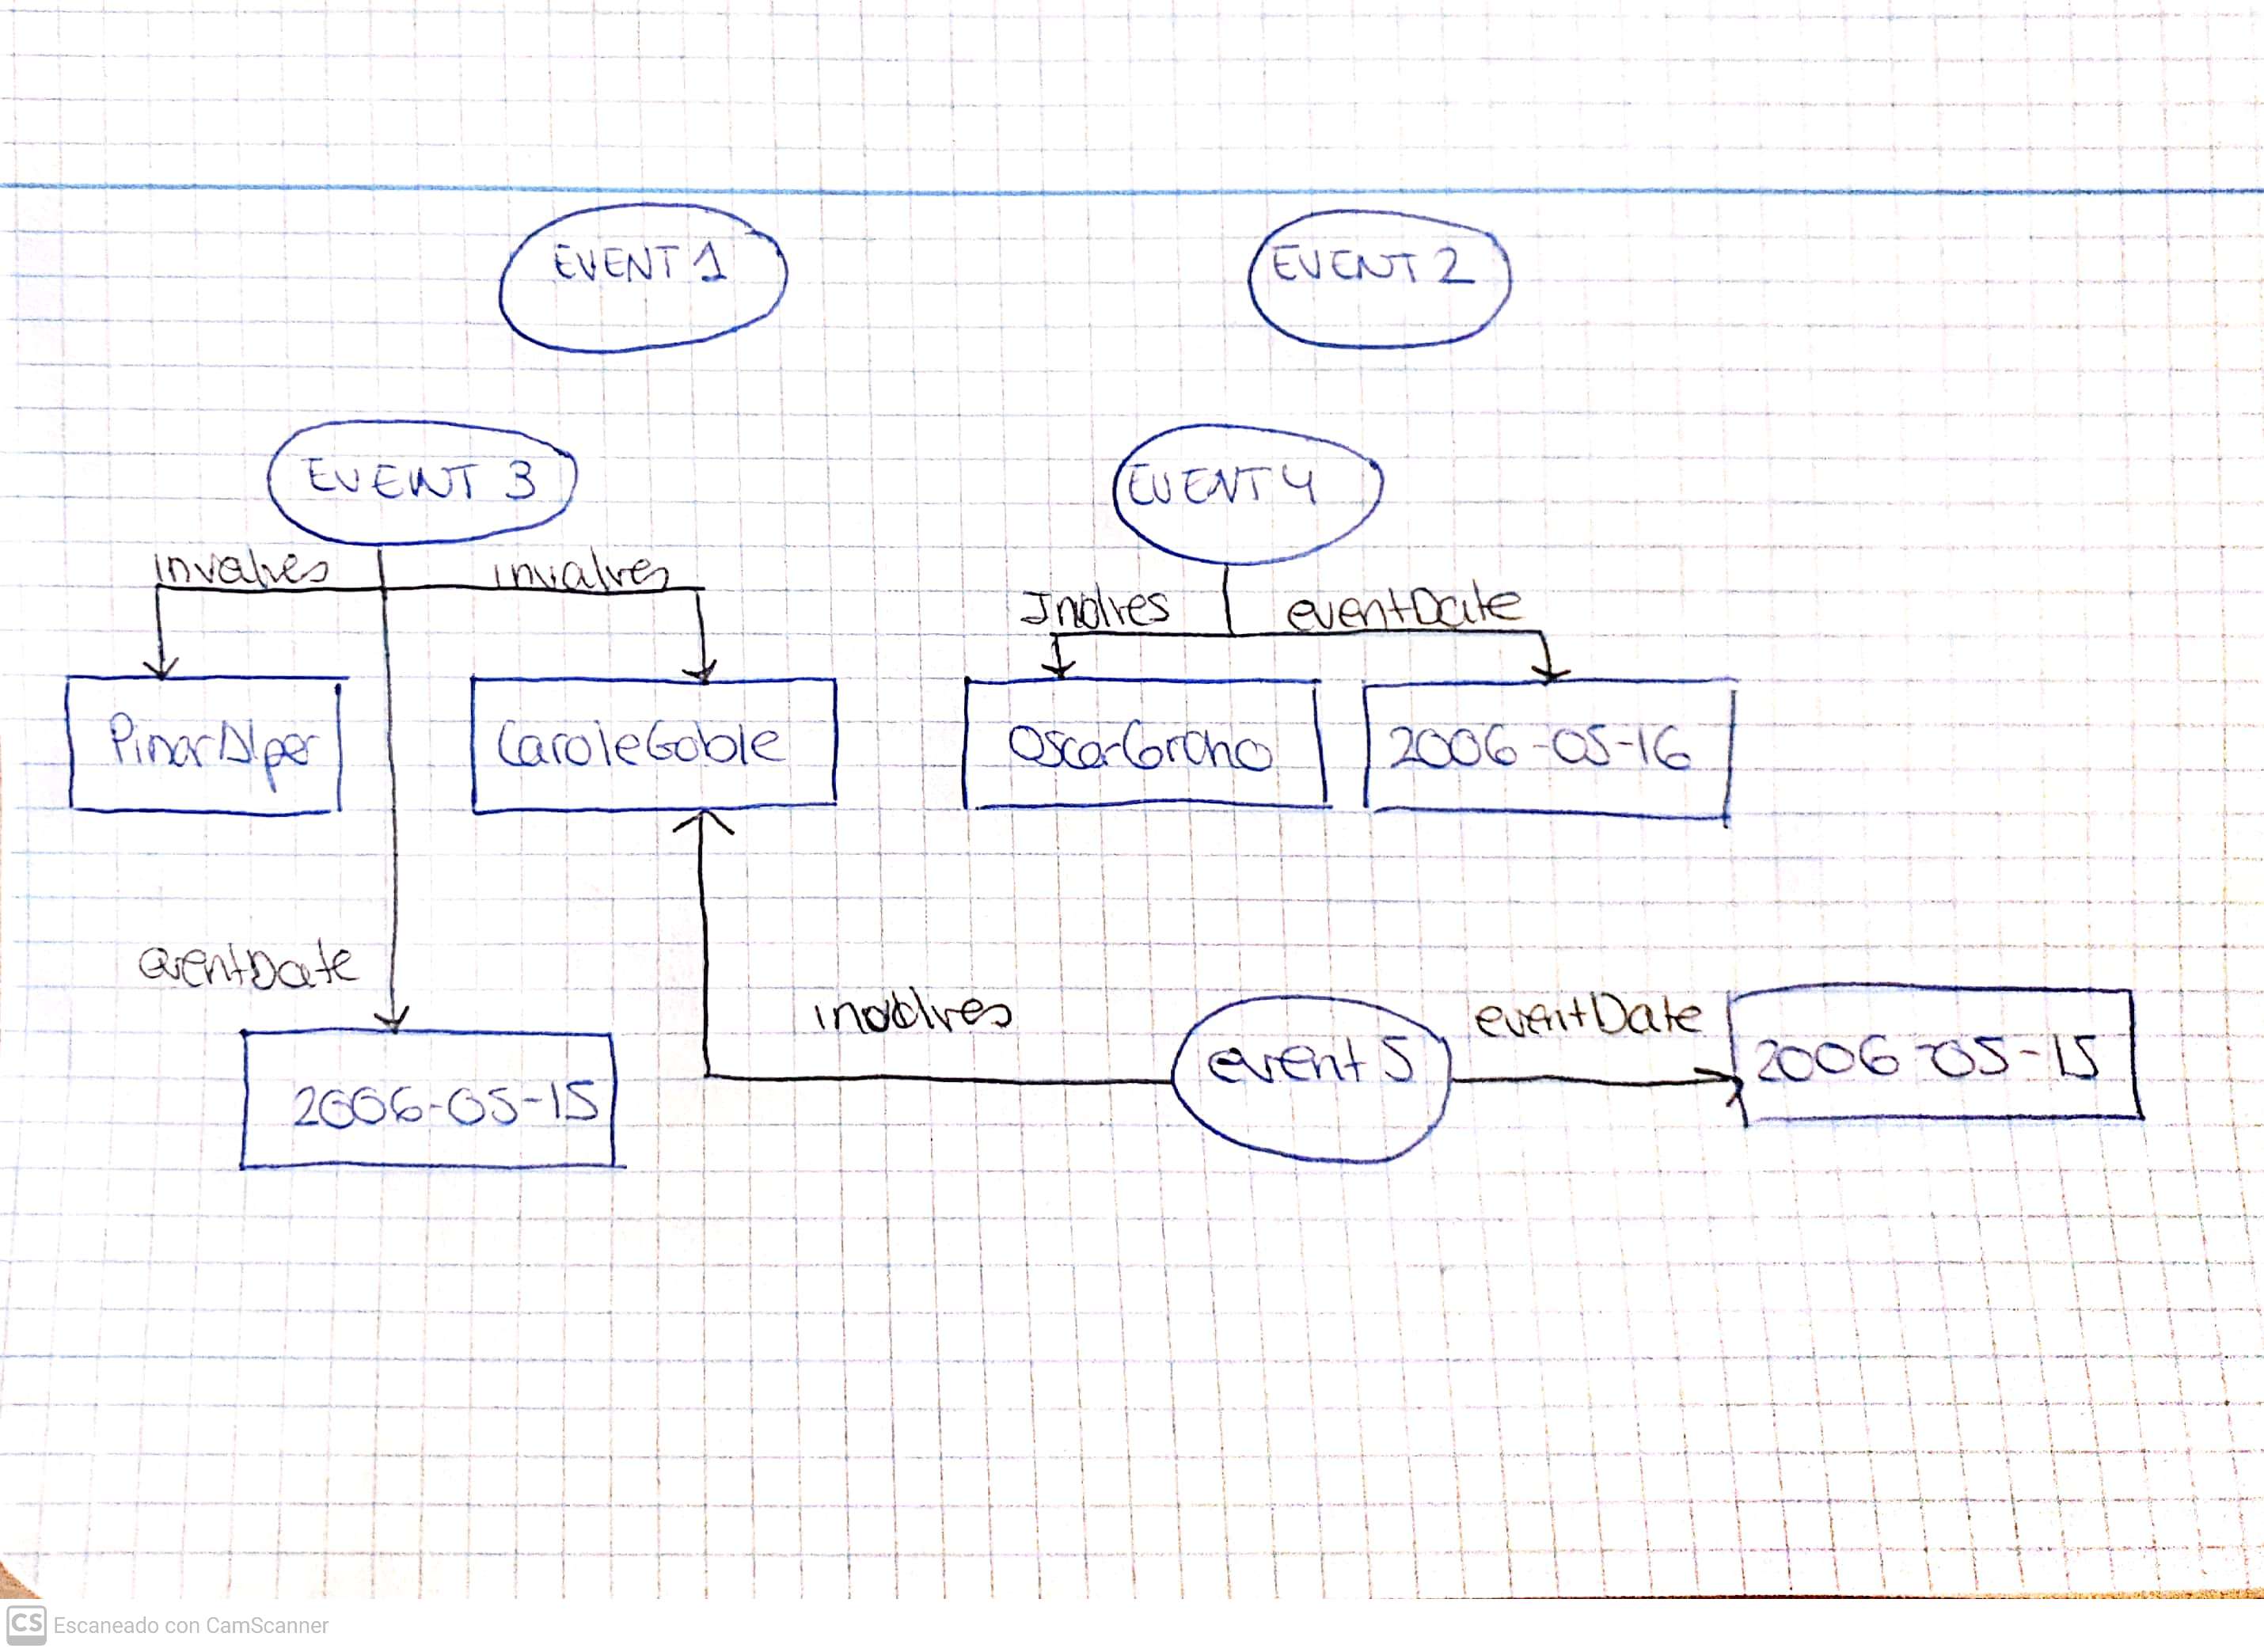 EVENT 1
EVENT 2
EVENT 3
EVENT 4
involves
involves
Inolves
eventDate
PinarAlper
CaroleGoble
OscarCorcho
2006-05-16
eventDate
inoolves
event 5
eventDate
2006-05-15
2006-05-15
CS Escaneado con CamScanner